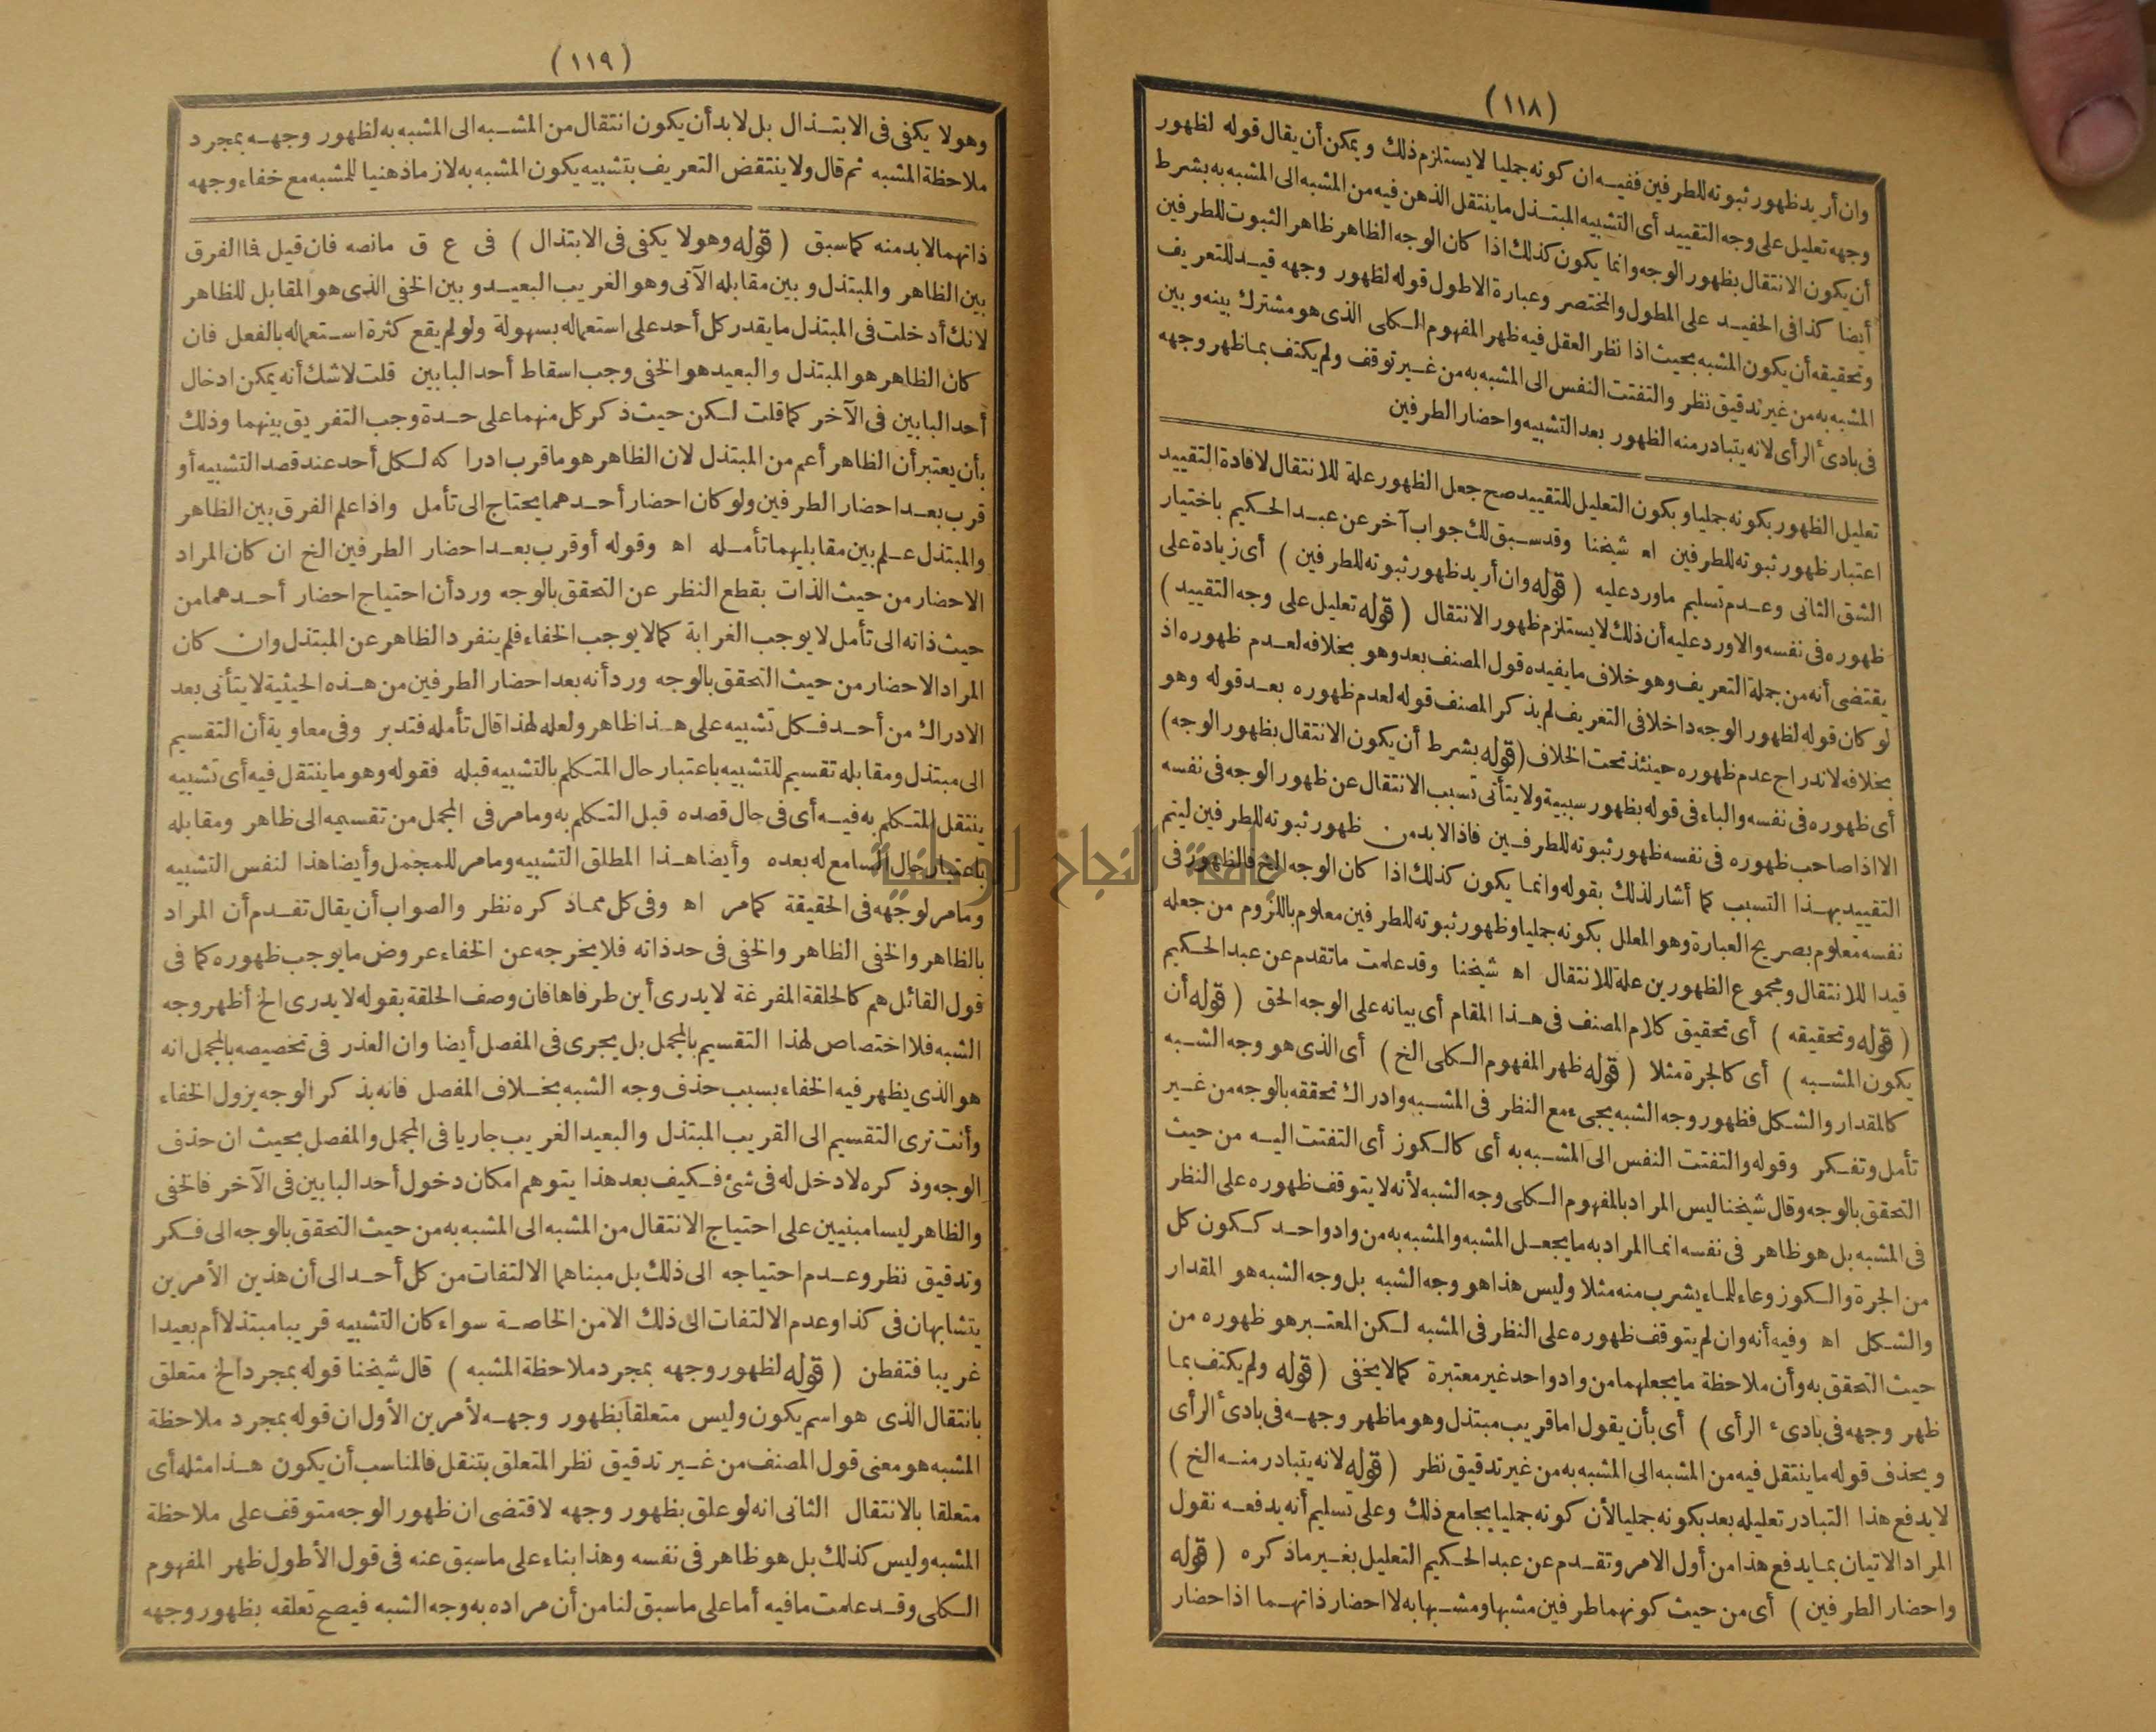 (١١٨)
وان أريد ظهور ثبوته للطرفين ففيه ان كونه جمليا لا يستلزم ذلك ويمكن أن يقال قوله لظهور
وجهه تعليل على وجه التقييد أى التشبيه المبتذل ما ينتقل الذهن فيه من المشبه الى المشبه به بشرط
أن يكون الانتقال بظهور الوجه وانما يكون كذلك اذا كان الوجه الظاهر ظاهر الثبوت للطرفين
أيضا كذا فى الحفيد على المطول والمختصر وعبارة الاطول قوله لظهور وجهه قيد للتعريف
وتحقيقه أن يكون المشبه بحيث اذا نظر العقل فيه ظهر المفهوم الكلى الذى هو مشترك بينه وبين
المشبه به من غير تدقيق نظر والتفتت النفس الى المشبه به من غير توقف ولم يكتف بما ظهر وجهه
فى بادئ الرأى لانه يتبادر منه الظهور بعد التشبيه واحضار الطرفين
تعليل الظهور بكونه جمليا وبكون التعليل للتقييد صح جعل الظهور علة للانتقال لافادة التقييد
اعتبار ظهور ثبوته للطرفين اه شيخنا وقد سبق لك جواب آخر عن عبد الحكيم باختيار
الشق الثانى وعدم تسليم ما ورد عليه (قوله وان أريد ظهور ثبوته للطرفين) أى زيادة على
ظهوره فى نفسه والا ورد عليه أن ذلك لا يستلزم ظهور الانتقال (قوله تعليل على وجه التقييد)
يقتضى أنه من جملة التعريف وهو خلاف ما يفيده قول المصنف بعد وهو بخلافه لعدم ظهوره اذ
لو كان قوله لظهور الوجه داخلا فى التعريف لم يذكر المصنف قوله لعدم ظهوره بعد قوله وهو
بخلافه لاندراج عدم ظهوره حينئذ تحت الخلاف (قوله بشرط أن يكون الانتقال بظهور الوجه)
أى ظهوره فى نفسه والباء فى قوله بظهور سببية ولا يتأتى تسبب الانتقال عن ظهور الوجه فى نفسه
الا اذا صاحب ظهوره فى نفسه ظهور ثبوته للطرفين فاذا لا بد من ظهور ثبوته للطرفين ليتم
التقييد بهذا التسبب كما أشار لذلك بقوله وانما يكون كذلك اذا كان الوجه الخ فالظهور فى
نفسه معلوم بصريح العبارة وهو المعلل بكونه جمليا وظهور ثبوته للطرفين معلوم باللزوم من جعله
قيدا للانتقال ومجموع الظهورين علة للانتقال اه شيخنا وقد علمت ما تقدم عن عبد الحكيم
(قوله وتحقيقه) أى تحقيق كلام المصنف فى هذا المقام أى بيانه على الوجه الحق (قوله أن
يكون المشبه) أى كالجرة مثلا (قوله ظهر المفهوم الكلى الخ) أى الذى هو وجه الشبه
كالمقدار والشكل فظهور وجه الشبه يجىء مع النظر فى المشبه وادراك تحققه بالوجه من غير
تأمل وتفكر وقوله والتفتت النفس الى المشبه به أى كالكوز أى التفتت اليه من حيث
التحقق بالوجه وقال شيخنا ليس المراد بالمفهوم الكلى وجه الشبه لأنه لا يتوقف ظهوره على النظر
فى المشبه بل هو ظاهر فى نفسه انما المراد به ما يجعل المشبه والمشبه به من واد واحد ككون كل
من الجرة والكوز وعاء للماء يشرب منه مثلا وليس هذا هو وجه الشبه بل وجه الشبه هو المقدار
والشكل اه وفيه أنه وان لم يتوقف ظهوره على النظر فى المشبه لكن المعتبر هو ظهوره من
حيث التحقق به وأن ملاحظة ما يجعلهما من واد واحد غير معتبرة كما لا يخفى (قوله ولم يكتف بما
ظهر وجهه فى بادىء الرأى) أى بأن يقول اما قريب مبتذل وهو ما ظهر وجهه فى بادئ الرأى
ويحذف قوله ما ينتقل فيه من المشبه الى المشبه به من غير تدقيق نظر (قوله لانه يتبادر منه الخ)
لا يدفع هذا التبادر تعليله بعد بكونه جمليا لأن كونه جمليا يجامع ذلك وعلى تسليم أنه يدفعه نقول
المراد الاتيان بما يدفع هذا من أول الامر وتقدم عن عبد الحكيم التعليل بغير ما ذكره (قوله
واحضار الطرفين) أى من حيث كونهما طرفين مشبها ومشبها به لا احضار ذاتهما اذ احضار
(١١٩)
وهو لا يكفى فى الابتذال بل لا بد أن يكون انتقال من المشبه الى المشبه به لظهور وجهه بمجرد
ملاحظة المشبه ثم قال ولا ينتقض التعريف بتشبيه يكون المشبه به لازما ذهنيا للمشبه مع خفاء وجهه
ذاتهما لا بد منه كما سبق (قوله وهو لا يكفى فى الابتذال) فى ع ق ما نصه فان قيل فما الفرق
بين الظاهر والمبتذل وبين مقابله الآتى وهو الغريب البعيد وبين الخفى الذى هو المقابل للظاهر
لانك أدخلت فى المبتذل ما يقدر كل أحد على استعماله بسهولة ولو لم يقع كثرة استعماله بالفعل فان
كان الظاهر هو المبتذل والبعيد هو الخفى وجب اسقاط أحد البابين قلت لا شك أنه يمكن ادخال
أحد البابين فى الآخر كما قلت لكن حيث ذكر كل منهما على حدة وجب التفريق بينهما وذلك
بأن يعتبر أن الظاهر أعم من المبتذل لان الظاهر هو ما قرب ادراكه لكل أحد عند قصد التشبيه أو
قرب بعد احضار الطرفين ولو كان احضار أحدهما يحتاج الى تأمل واذا علم الفرق بين الظاهر
والمبتذل علم بين مقابليهما تأمله اه وقوله أو قرب بعد احضار الطرفين الخ ان كان المراد
الاحضار من حيث الذات بقطع النظر عن التحقق بالوجه ورد أن احتياج احضار أحدهما من
حيث ذاته الى تأمل لا يوجب الغرابة كما لا يوجب الخفاء فلم ينفرد الظاهر عن المبتذل وان كان
المراد الاحضار من حيث التحقق بالوجه ورد أنه بعد احضار الطرفين من هذه الحيثية لا يتأتى بعد
الادراك من أحد فكل تشبيه على هذا ظاهر ولعله لهذا قال تأمله فتدبر وفى معاوية أن التقسيم
الى مبتذل ومقابله تقسيم للتشبيه باعتبار حال المتكلم بالتشبيه قبله فقوله وهو ما ينتقل فيه أى تشبيه
ينتقل المتكلم به فيه أى فى حال قصده قبل التكلم به وما مر فى المجمل من تقسيمه الى ظاهر ومقابله
باعتبار حال السامع له بعده وأيضا هذا المطلق التشبيه وما مر للمجمل وأيضا هذا لنفس التشبيه
وما مر لوجهه فى الحقيقة كما مر اه وفى كل مما ذكره نظر والصواب أن يقال تقدم أن المراد
بالظاهر والخفى الظاهر والخفى فى حد ذاته فلا يخرجه عن الخفاء عروض ما يوجب ظهوره كما فى
قول القائل هم كالحلقة المفرغة لا يدرى أين طرفاها فان وصف الحلقة بقوله لا يدرى الخ أظهر وجه
الشبه فلا اختصاص لهذا التقسيم بالمجمل بل يجرى فى المفصل أيضا وان العذر فى تخصيصه بالمجمل انه
هو الذى يظهر فيه الخفاء بسبب حذف وجه الشبه بخلاف المفصل فانه بذكر الوجه يزول الخفاء
وأنت ترى التقسيم الى القريب المبتذل والبعيد الغريب جاريا فى المجمل والمفصل بحيث ان حذف
الوجه وذكره لا دخل له فى شئ فكيف بعد هذا يتوهم امكان دخول أحد البابين فى الآخر فالخفى
والظاهر ليسا مبنيين على احتياج الانتقال من المشبه الى المشبه به من حيث التحقق بالوجه الى فكر
وتدقيق نظر وعدم احتياجه الى ذلك بل مبناهما الالتفات من كل أحد الى أن هذين الأمرين
يتشابهان فى كذا وعدم الالتفات الى ذلك الا من الخاصة سواء كان التشبيه قريبا مبتذلا أم بعيدا
غريبا فتفطن (قوله لظهور وجهه بمجرد ملاحظة المشبه) قال شيخنا قوله بمجرد الخ متعلق
بانتقال الذى هو اسم يكون وليس متعلقا بظهور وجهه لأمرين الأول ان قوله بمجرد ملاحظة
المشبه هو معنى قول المصنف من غير تدقيق نظر المتعلق بتنقل فالمناسب أن يكون هذا مثله أى
متعلقا بالانتقال الثانى انه لو علق بظهور وجهه لاقتضى ان ظهور الوجه متوقف على ملاحظة
المشبه وليس كذلك بل هو ظاهر فى نفسه وهذا بناء على ما سبق عنه فى قول الأطول ظهر المفهوم
الكلى وقد علمت ما فيه أما على ما سبق لنا من أن مراده به وجه الشبه فيصح تعلقه بظهور وجهه
جامعة النجاح الوطنية